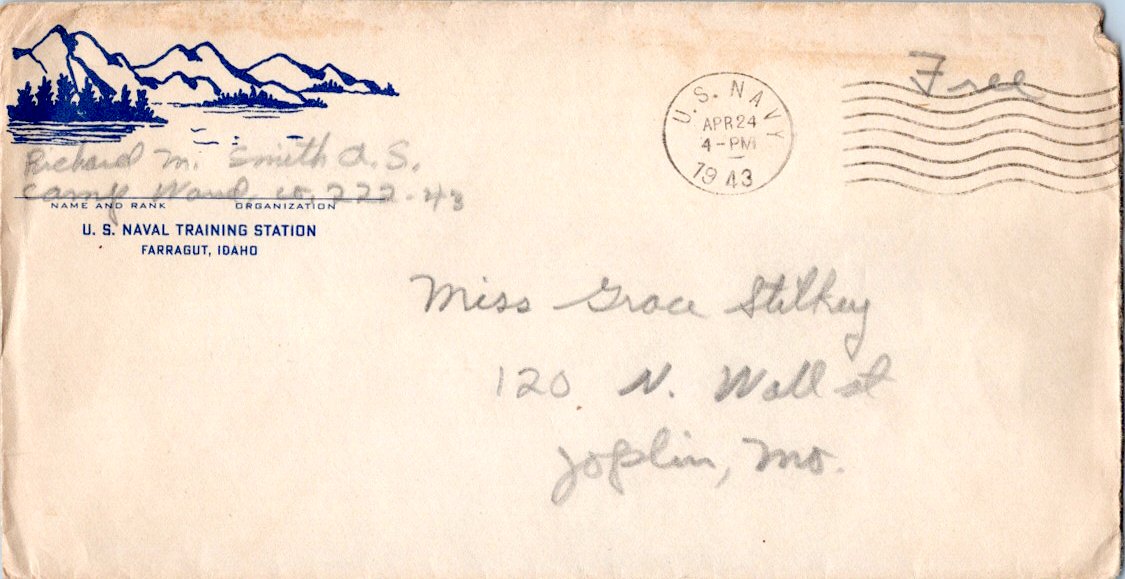 Free
U. S. NAVY
APR 24
4-PM
1943
Richard M. Smith A.S.
Camp Ward Co, 222-43
NAME AND RANK ORGANIZATION
U. S. NAVAL TRAINING STATION
FARRAGUT, IDAHO
Miss Grace Stilhey
120 N. Wall st
Joplin, Mo.